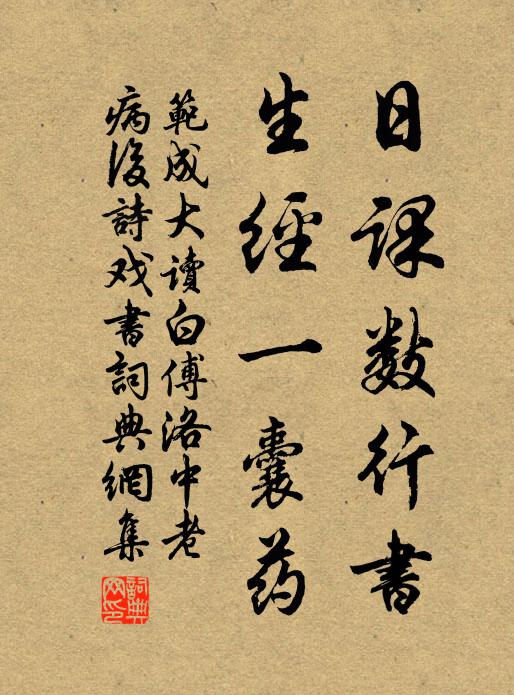 日课数行書
生經一囊药
範成大讀白傅洛中老
病後詩戏書詞典網集
詞典
网印